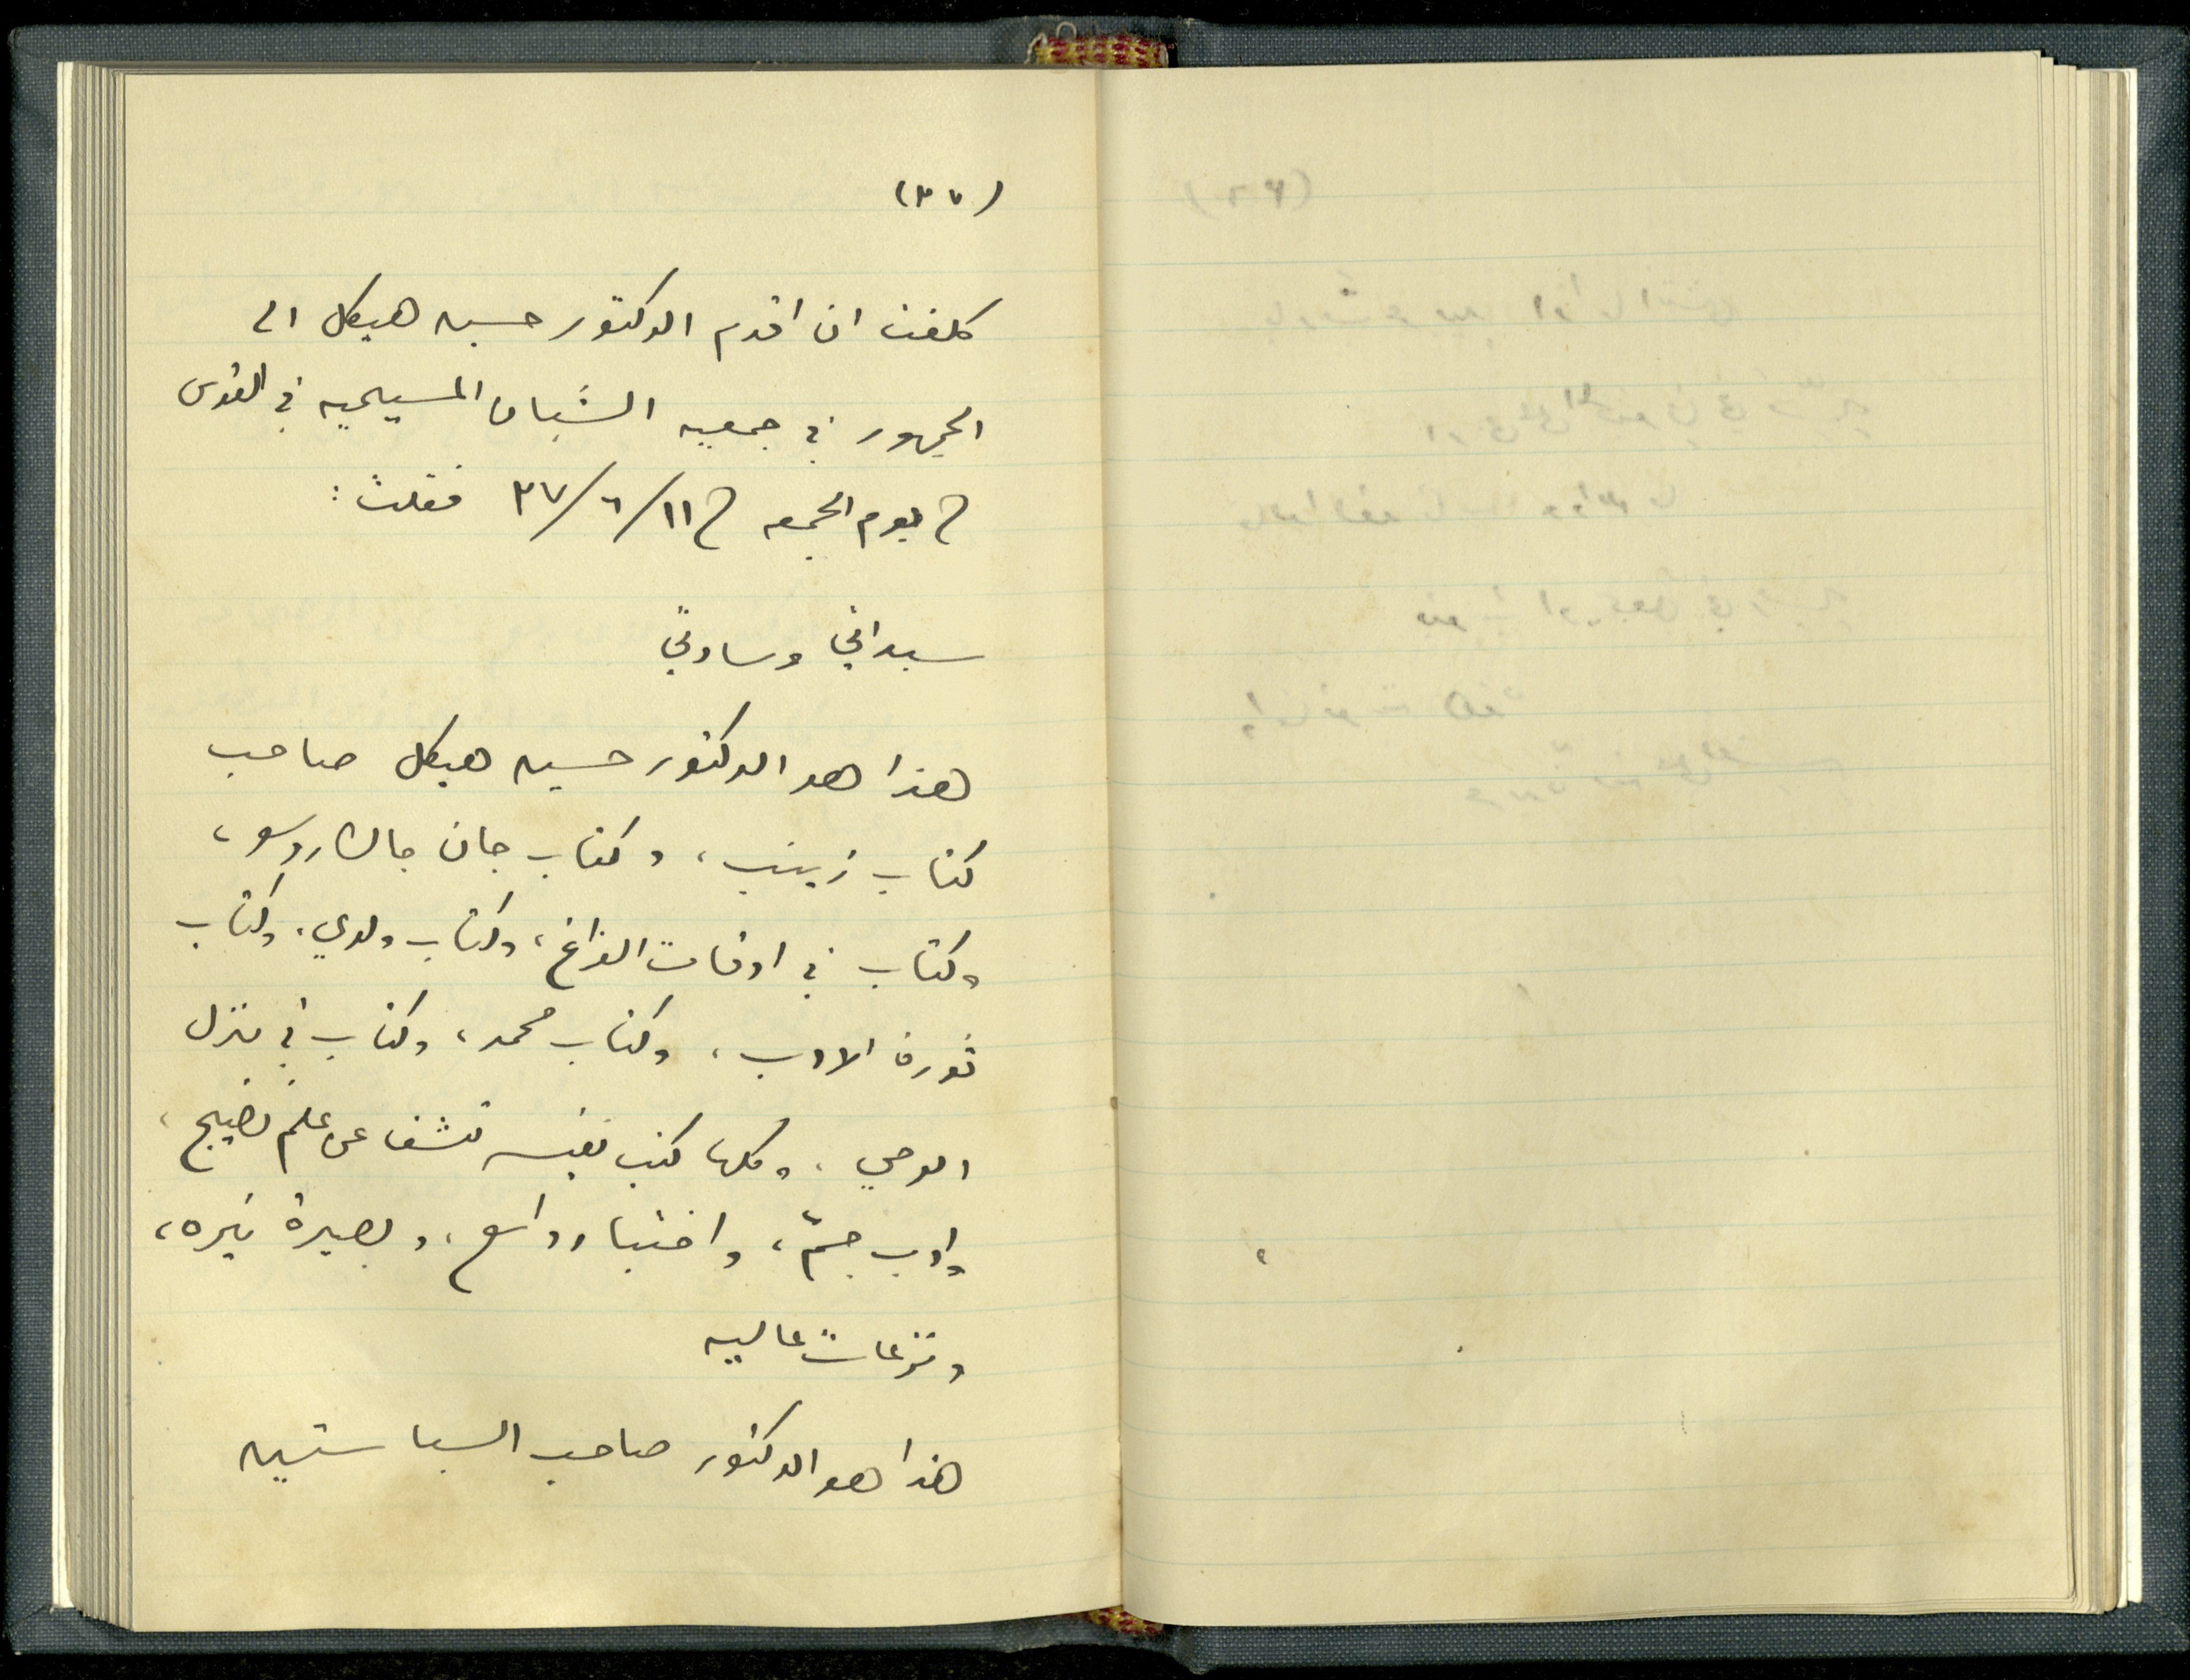 (٣٧)
كلفت ان اقدم الدكتور حسين هيكل الى
الجمهور في جمعيه الشبان المسيحيه في القدس
في يوم الجمعه في ١١/٦/٣٧ فقلت:
سيداتي وسادتي
هذا هو الدكتور حسين هيكل صاحب
كتاب زينب، وكتاب جان جاك روسو،
وكتاب في اوقات الفراغ، وكتاب ولدي، وكتاب
ثورة الادب، وكتاب محمد، وكتاب في منزل
الوحي، وكلها كتب نفيسه تشف عن علم نضيج،
وادب جمّ، واختبار واسع، وبصيرة نيره،
ونزعات عاليه
هذا هو الدكتور صاحب السياستين